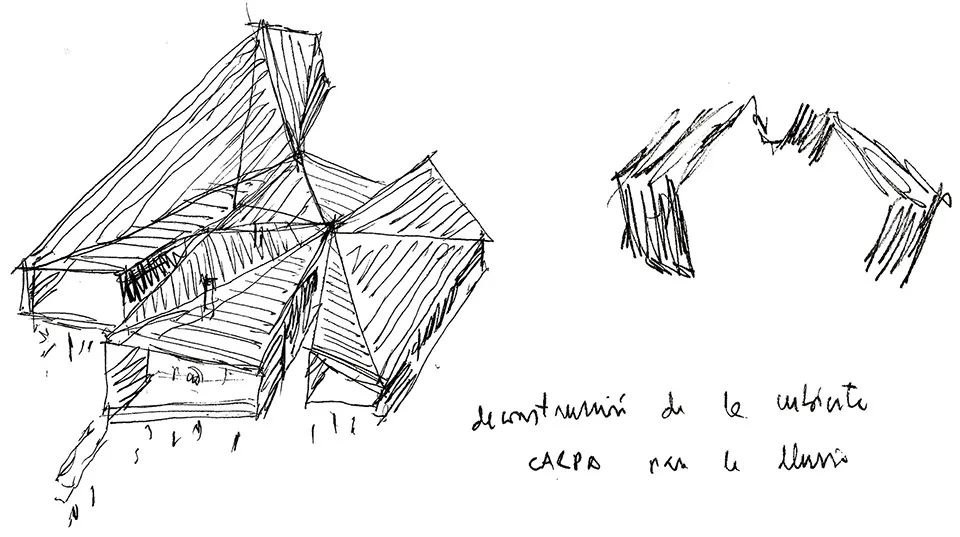 deconstrucción de la cubierta
CARPA para la lluvia